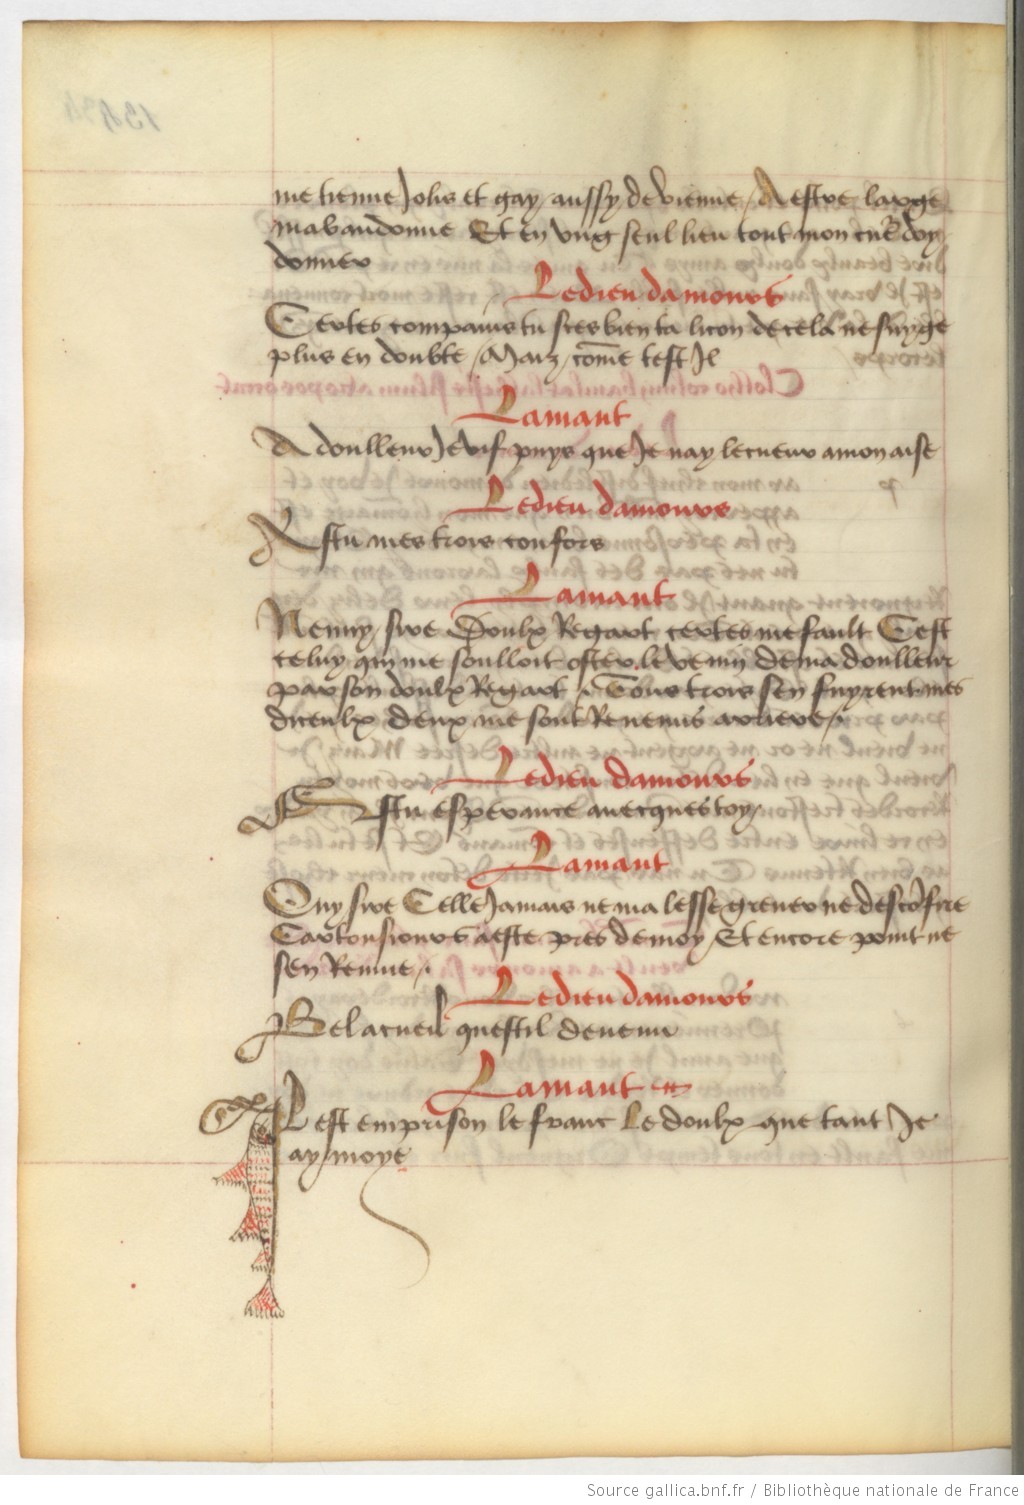 me tienne Jolis et gay / aussy devienne / A estre large
mabandonne Et en ung seul lieu tout mon cue͂r doy
donner
Le dieu damours
Certes compains tu sces bien ta licon de cela ne suy ge
plus en doubte / Maiz / com̄e test Jl
Lamant
A doulleur Je vif puys que Je nay le cueur a mon aise
Le dieu damours
As tu mes trois confors
Lamant
Nenny / sire Doulx Regart certes me fault Cest
celuy qui me soulloit oster le venin de ma doulleur
par son doulx Regart / Tous trois sen fuyrent mes
diceulx deux me sont Revenus arriere /.
Le dieu damours
Es tu esperance avecques toy /
Lamant
Ouy sire Celle Jamais ne ma lesse grever ne desco͂fire
Car tousiours a este pres de moy / Et encore point ne
sen Remue /.
Le dieu damours
Bel acueil quest il devenu
Lamant
Il est em prison le franc Le doulx que tant Je
ay moye
Source gallica.bnf.fr / Bibliothèque nationale de France